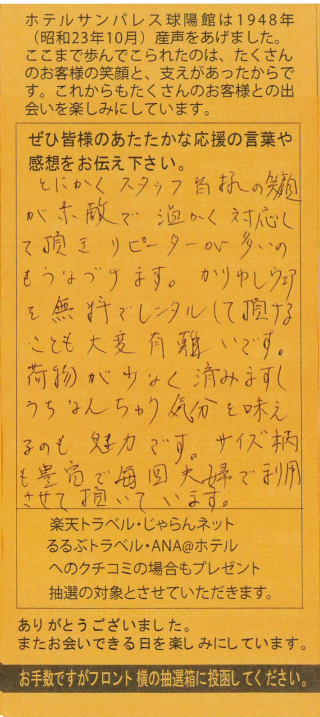 ホテルサンパレス球陽館は1948年
（昭和23年10月）産声をあげました。
ここまで歩んでこられたのは、たくさん
のお客様の笑顔と、支えがあったからで
す。これからもたくさんのお客様との出
会いを楽しみにしています。
ぜひ皆様のあたたかな応援の言葉や
感想をお伝え下さい。
とにかく スタッフ皆様の笑顔
が素敵で 温かく対応し
て頂き リピーターが多いの
もうなづけます。 かりゆしウェア
を無料でレンタルして頂ける
ことも大変有難いです。
荷物が少なく済みますし
うちなんちゅう気分を味え
るのも 魅力です。サイズ柄
も豊富で毎回夫婦で利用
させて頂いています。
楽天トラベル・じゃらんネット
るるぶトラベル・ANA@ホテル
へのクチコミの場合もプレゼント
抽選の対象とさせていただきます。
ありがとうございました。
またお会いできる日を楽しみにしています。
お手数ですがフロント横の抽選箱に投函してください。